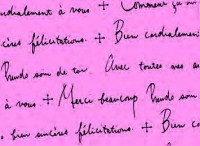 ordialement à vous + Comment ça va
cères félicitations. + Bien cordialement
Prends soin de toi Avec toutes mes
à vous + Merci beaucoup Prends soin
bien sincères félicitations. + Bien co